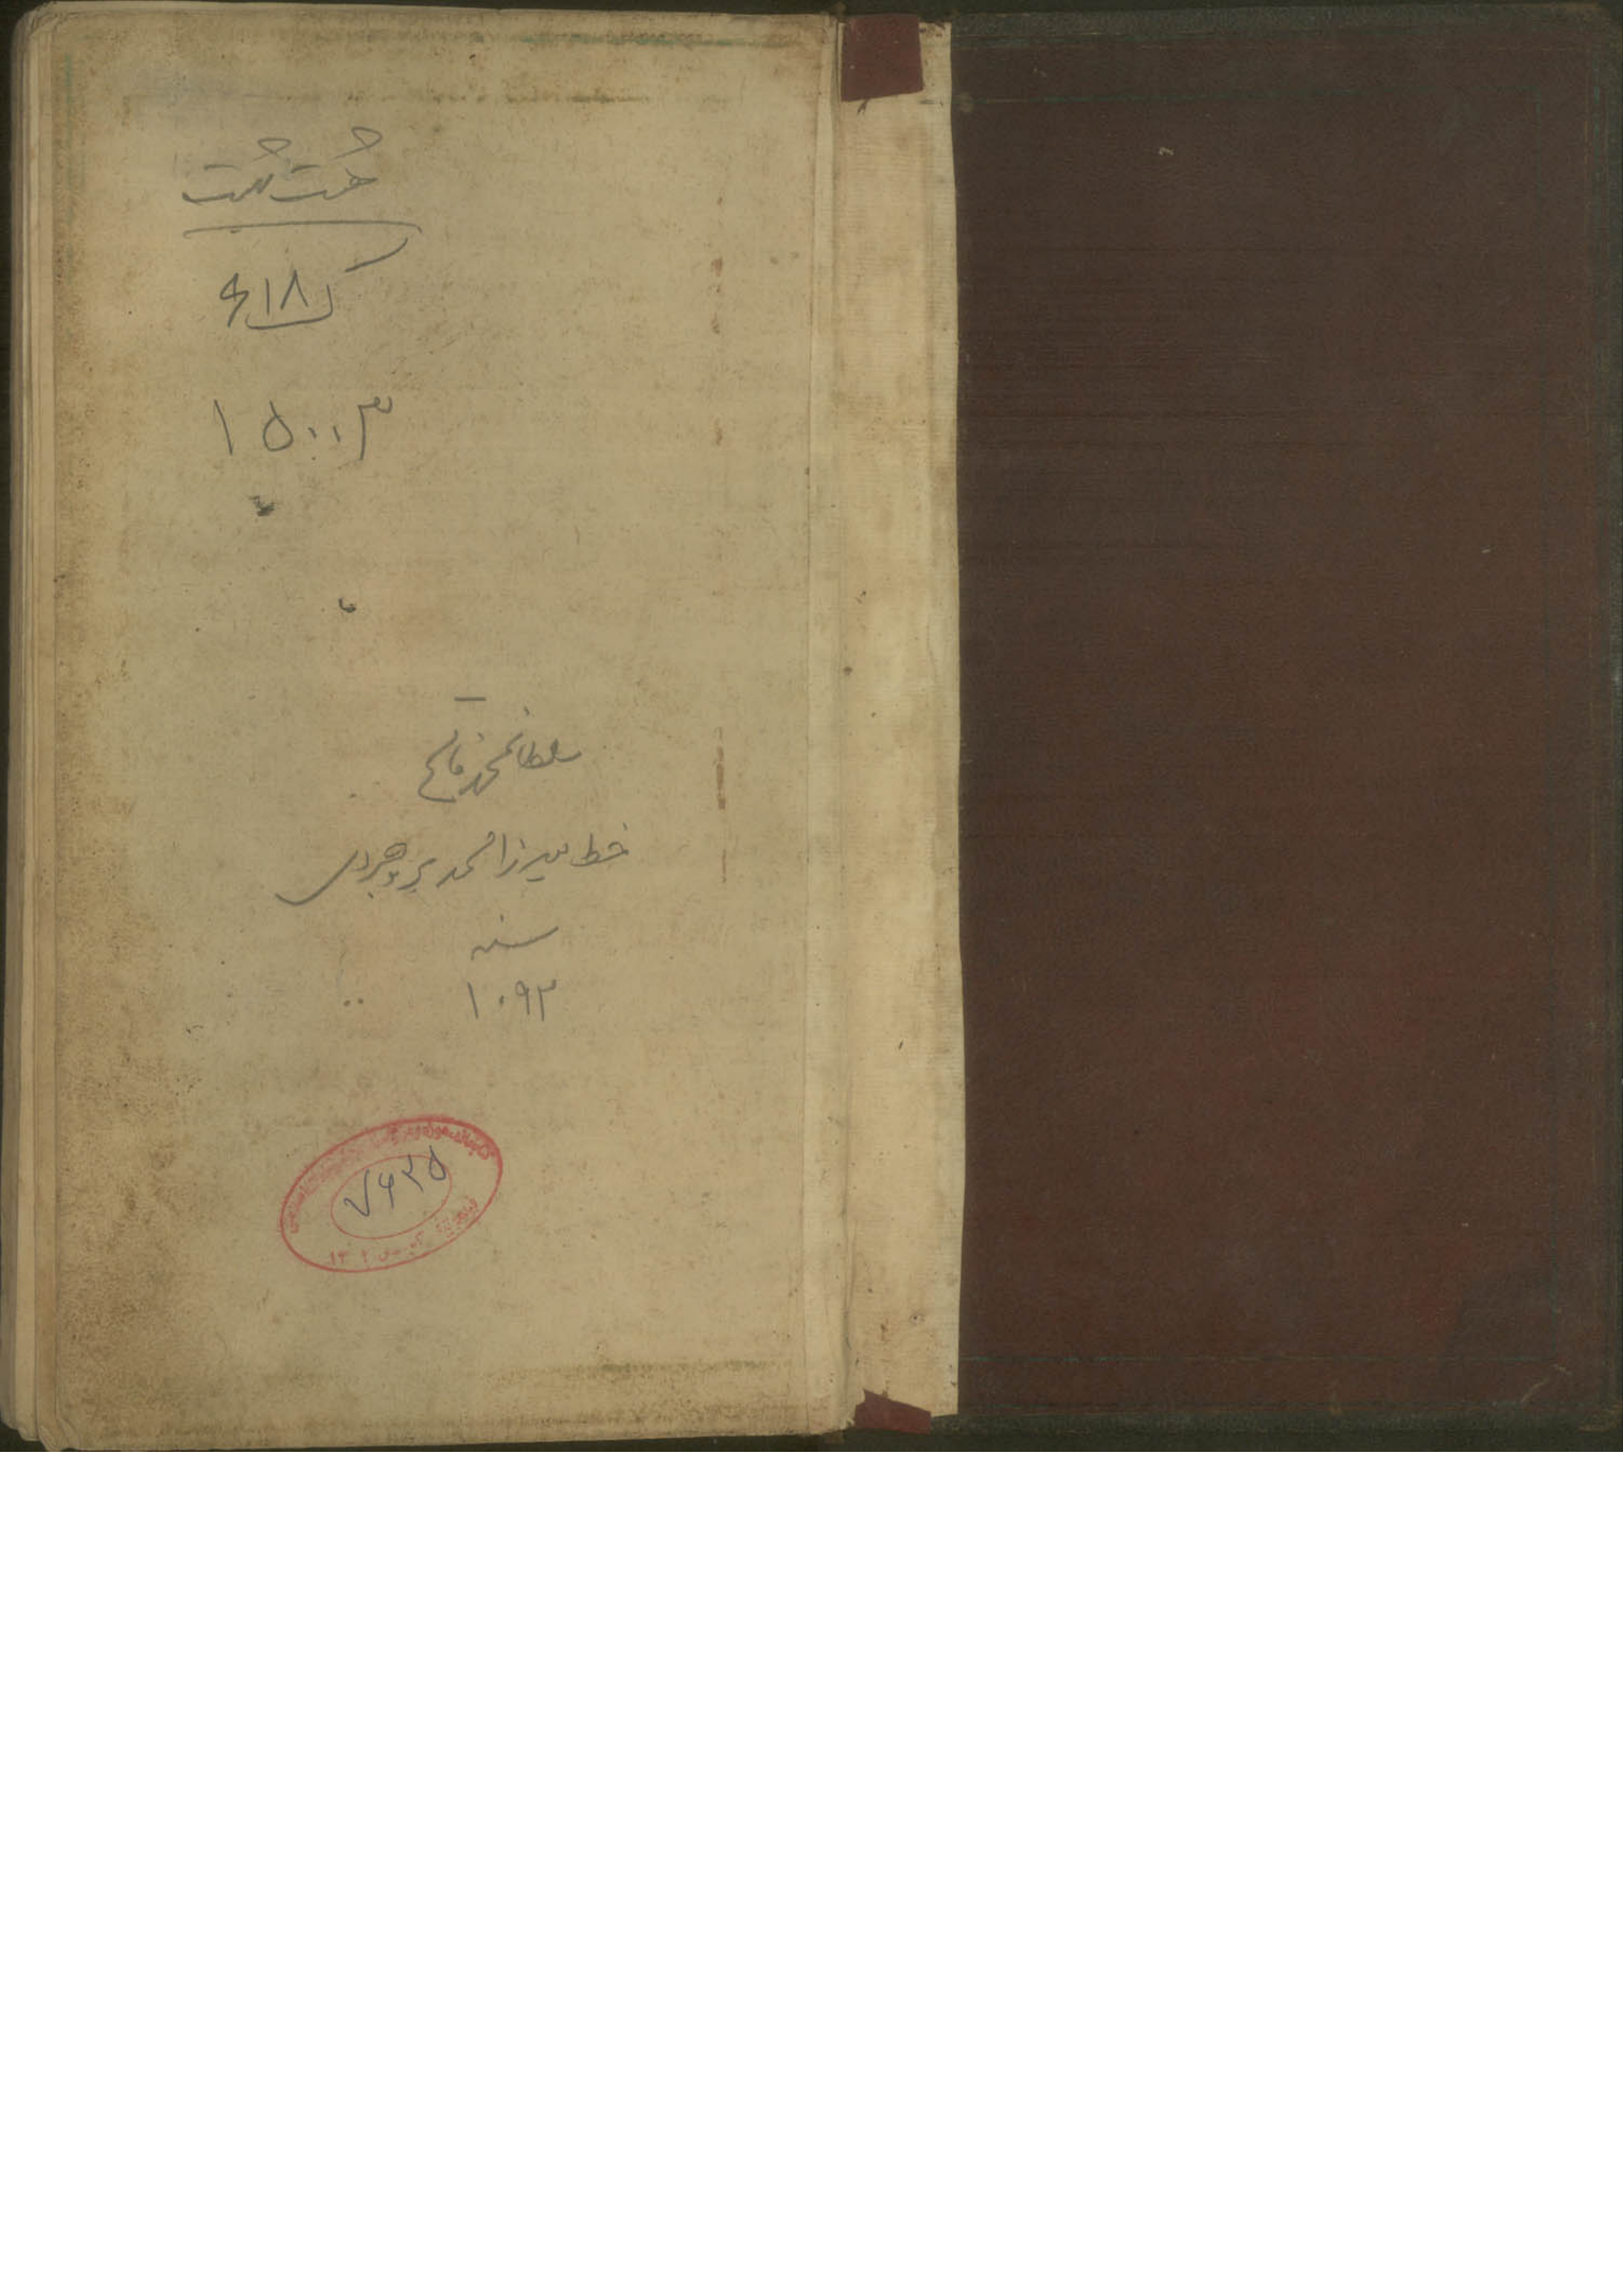 هشت بهشت
۶۱۸
۱۵۰۰۳
سلطانمحمد فاتح
خط میرزا محمد بروجردی
سنه
۱۰۹۳
۷۶۳۵